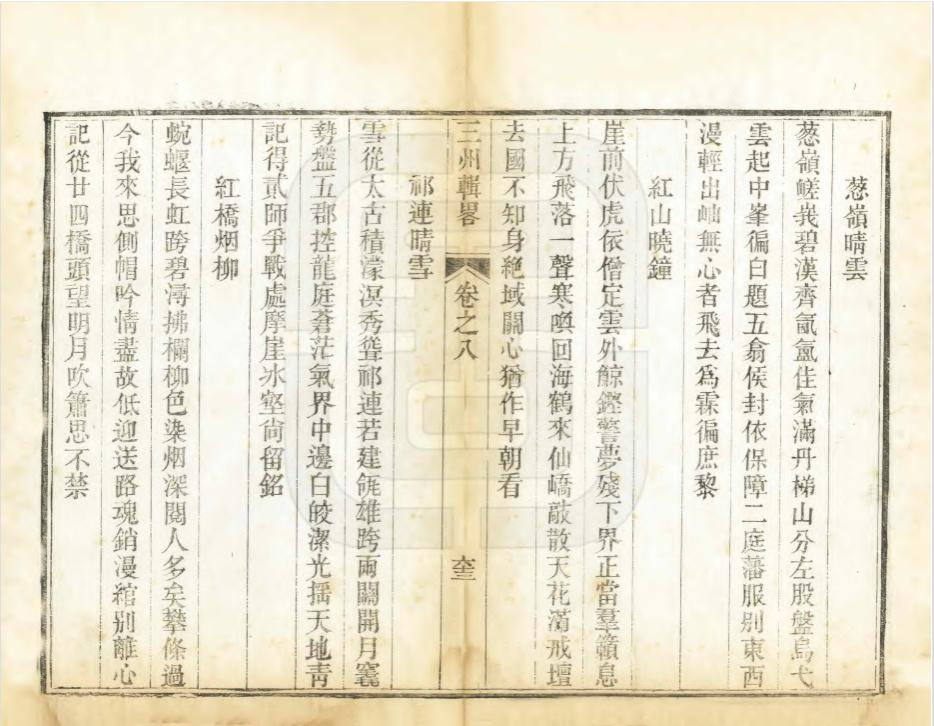 葱嶺晴雲
葱嶺嵯峩碧漢齊氤氳佳氣滿丹梯山分左股盤烏弋
雲起中峯徧白題五翕侯封依保障二庭藩服别東西
漫輕出岫無心者飛去爲霖徧庶黎
紅山曉鐘
崖前伏虎依僧定雲外鯨鏗警夢殘下界正當羣籟息
上方飛落一聲寒喚回海鶴來仙嶠敲散天花滿戒壇
去國不知身絶域關心猶作早朝看
三州輯畧
卷之八
祁連晴雪
雪從太古積濛溟秀聳祁連若建瓴雄跨兩關開月窟
勢盤五郡控龍庭蒼茫氣界中邊白皎潔光揺天地靑
記得貳師爭戰處摩崖氷壑尙留銘
紅橋烟柳
蜿蜒長虹跨碧潯拂欄柳色染烟深閱人多矣攀條過
今我來思側帽吟情盡故低迎送路魂銷漫綰别離心
記從廿四橋頭望明月吹簫思不禁